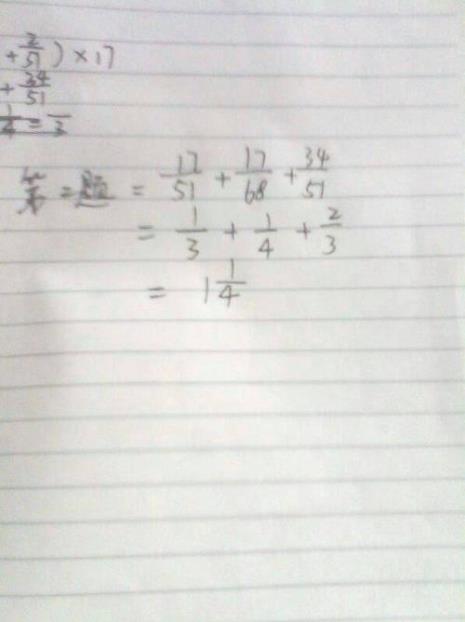 + 2/51 ) × 17
+ 34/51
1/4 = /3
第二题 = 17/51 + 17/68 + 34/51
= 1/3 + 1/4 + 2/3
= 1 1/4